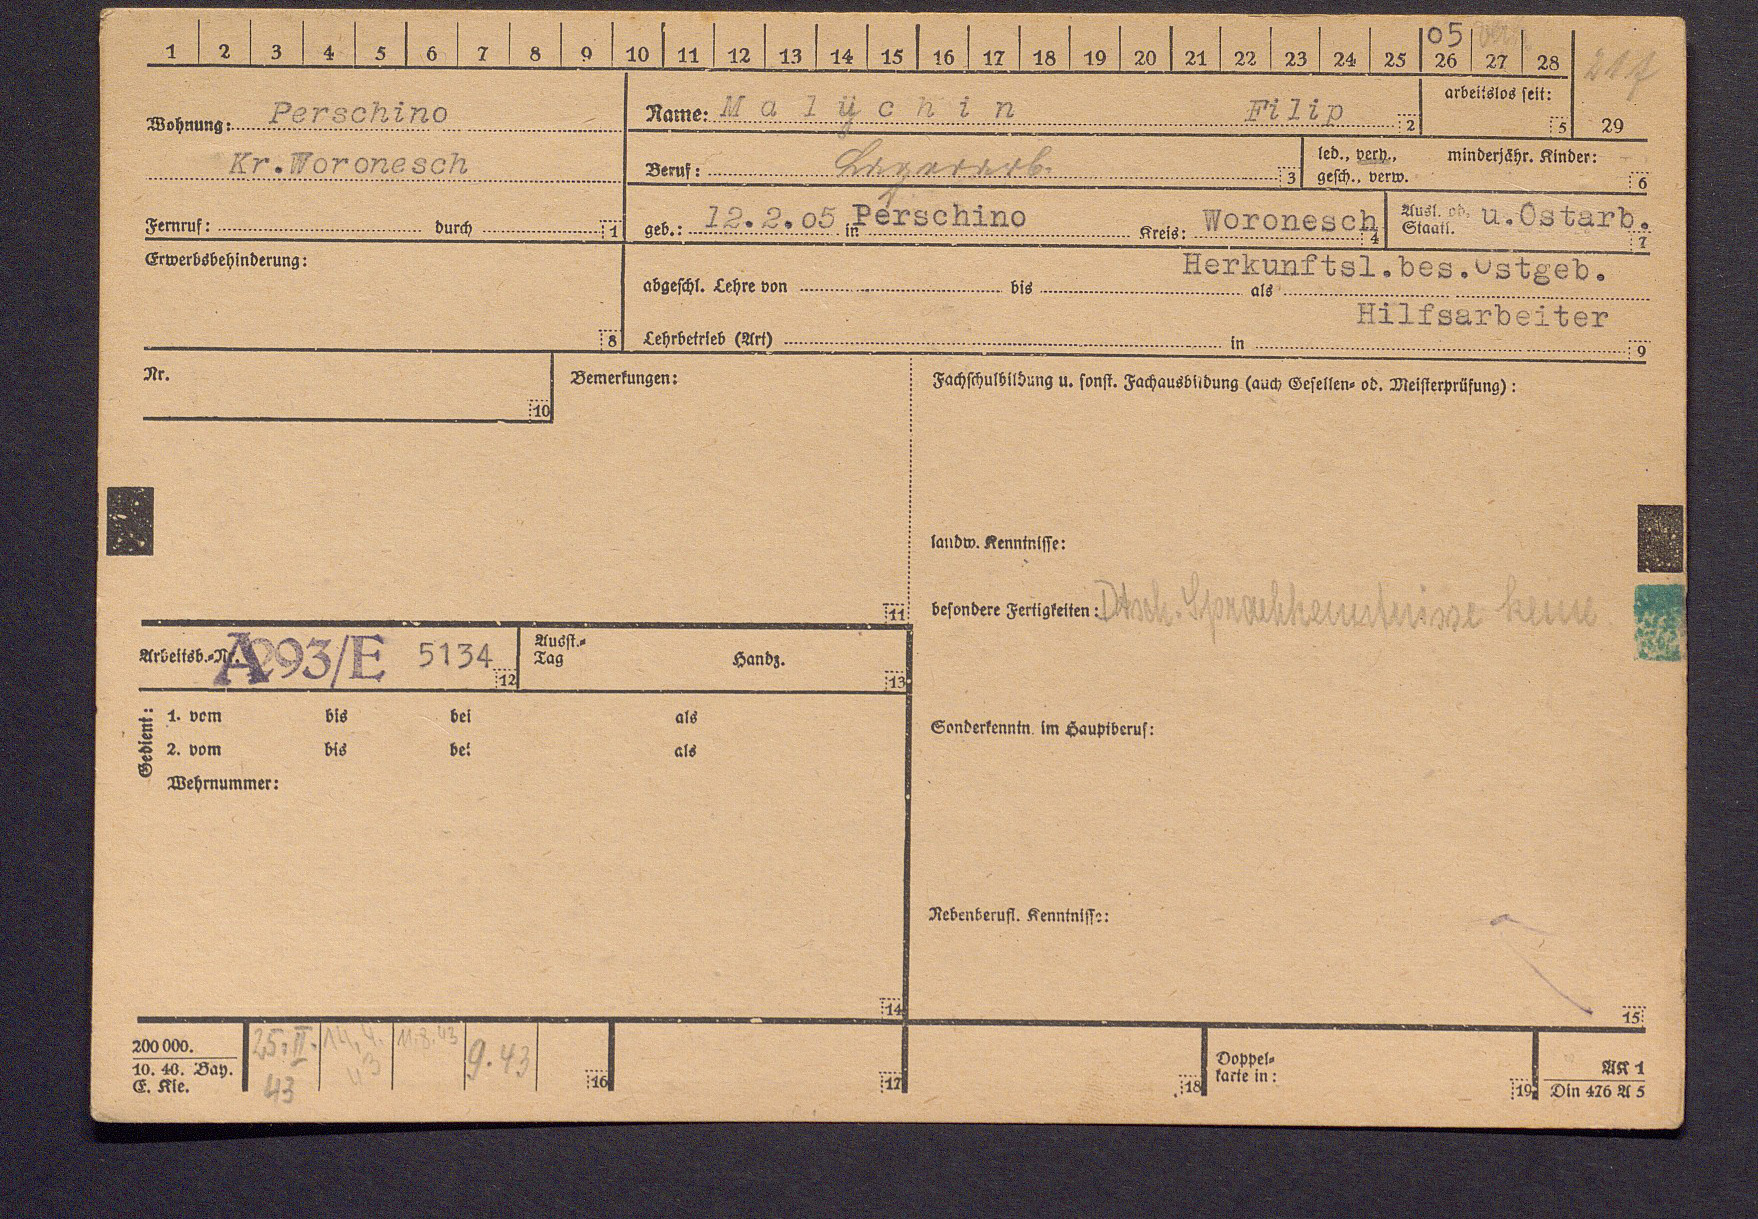 1 2 3 4 5 6 7 8 9 10 11 12 13 14 15 16 17 18 19 20 21 22 23 24 25 26 27 28
05
Wohnung: Perschino
Kr.Woronesch
Fernruf: durch 1
Name: Malÿchin Filip 2
arbeitslos seit: 5
29
Beruf: 3
led., verh., minderjähr. Kinder:
gesch., verw. 6
geb.: 12.2.05 in Perschino Kreis: Woronesch 4
Ausl. od. u.Ostarb.
Staatl. 7
Erwerbsbehinderung: 8
Herkunftsl.bes.Ostgeb.
abgeschl. Lehre von bis als
Hilfsarbeiter
Lehrbetrieb (Art) in 9
Nr. 10
Bemerkungen: 11
Fachschulbildung u. sonst. Fachausbildung (auch Gesellen- od. Meisterprüfung):
landw. Kenntnisse:
besondere Fertigkeiten: Dtsch. Sprachkenntnisse keine
Arbeitsb.-Nr. A293/E 5134 12
Ausst.-
Tag Handz. 13
Gedient:
1. vom bis bei als
2. vom bis bei als
Wehrnummer: 14
Sonderkenntn. im Hauptberuf:
Nebenberufl. Kenntnisse: 15
200 000.
10. 40. Bay.
E. Kie.
25.II.
43
14.4.
43
11.8.43
9.43
16
17
18
Doppel-
karte in: 19
AK 1
Din 476 A 5